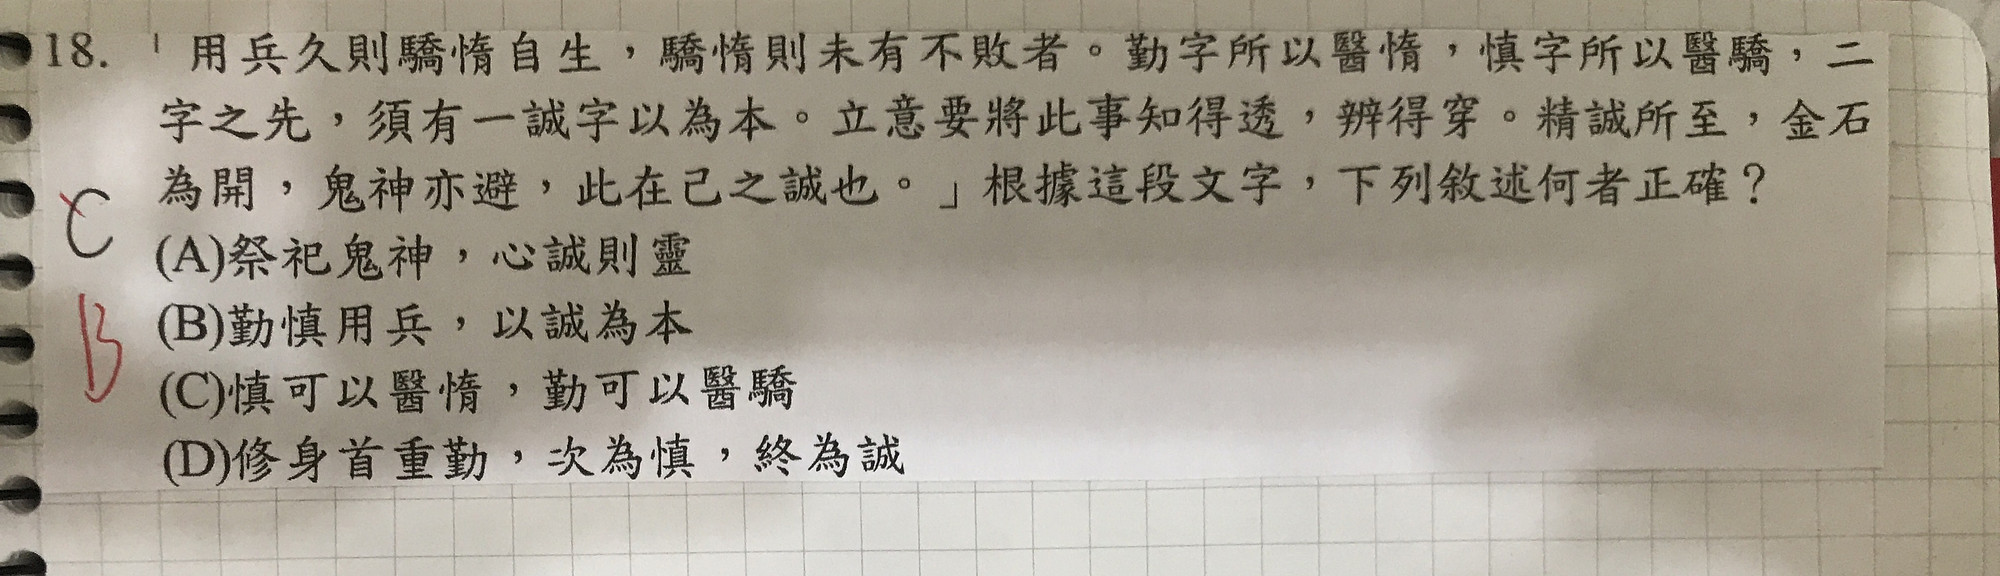 18. 「用兵久則驕惰自生，驕惰則未有不敗者。勤字所以醫惰，慎字所以醫驕，二
字之先，須有一誠字以為本。立意要將此事知得透，辨得穿。精誠所至，金石
為開，鬼神亦避，此在己之誠也。」根據這段文字，下列敘述何者正確？
C
(A)祭祀鬼神，心誠則靈
B
(B)勤慎用兵，以誠為本
(C)慎可以醫惰，勤可以醫驕
(D)修身首重勤，次為慎，終為誠